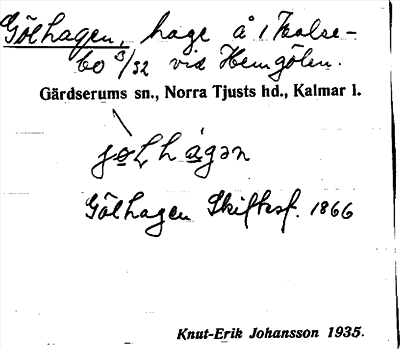 Gölhagen, hage å 1 False-
bo 3/32 vid Hemgölen.
Gärdserums sn., Norra Tjusts hd., Kalmar l.
jölhágən
Gölhagen Skifksf. 1866
Knut-Erik Johansson 1935.